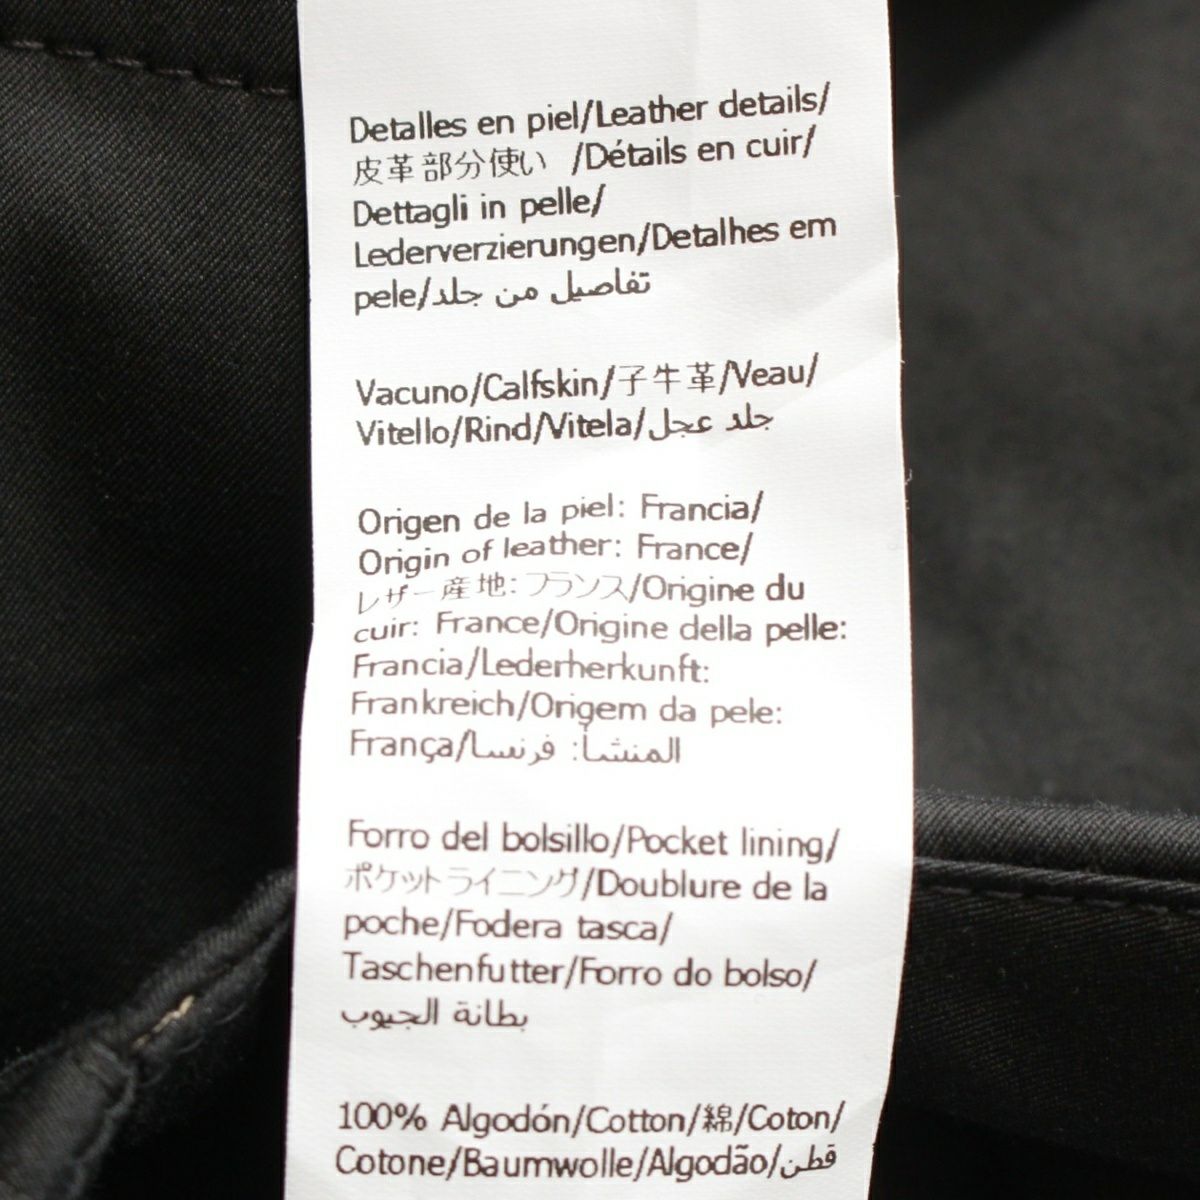 Detalles en piel/Leather details/
皮革部分使い /Détails en cuir/
Dettagli in pelle/
Lederverzierungen/Detalhes em
pele/تفاصيل من جلد
Vacuno/Calfskin/子牛革/Veau/
Vitello/Rind/Vitela/جلد عجل
Origen de la piel: Francia/
Origin of leather: France/
レザー産地: フランス/Origine du
cuir: France/Origine della pelle:
Francia/Lederherkunft:
Frankreich/Origem da pele:
França/المنشأ: فرنسا
Forro del bolsillo/Pocket lining/
ポケットライニング/Doublure de la
poche/Fodera tasca/
Taschenfutter/Forro do bolso/
بطانة الجيوب
100% Algodón/Cotton/綿/Coton/
Cotone/Baumwolle/Algodão/قطن